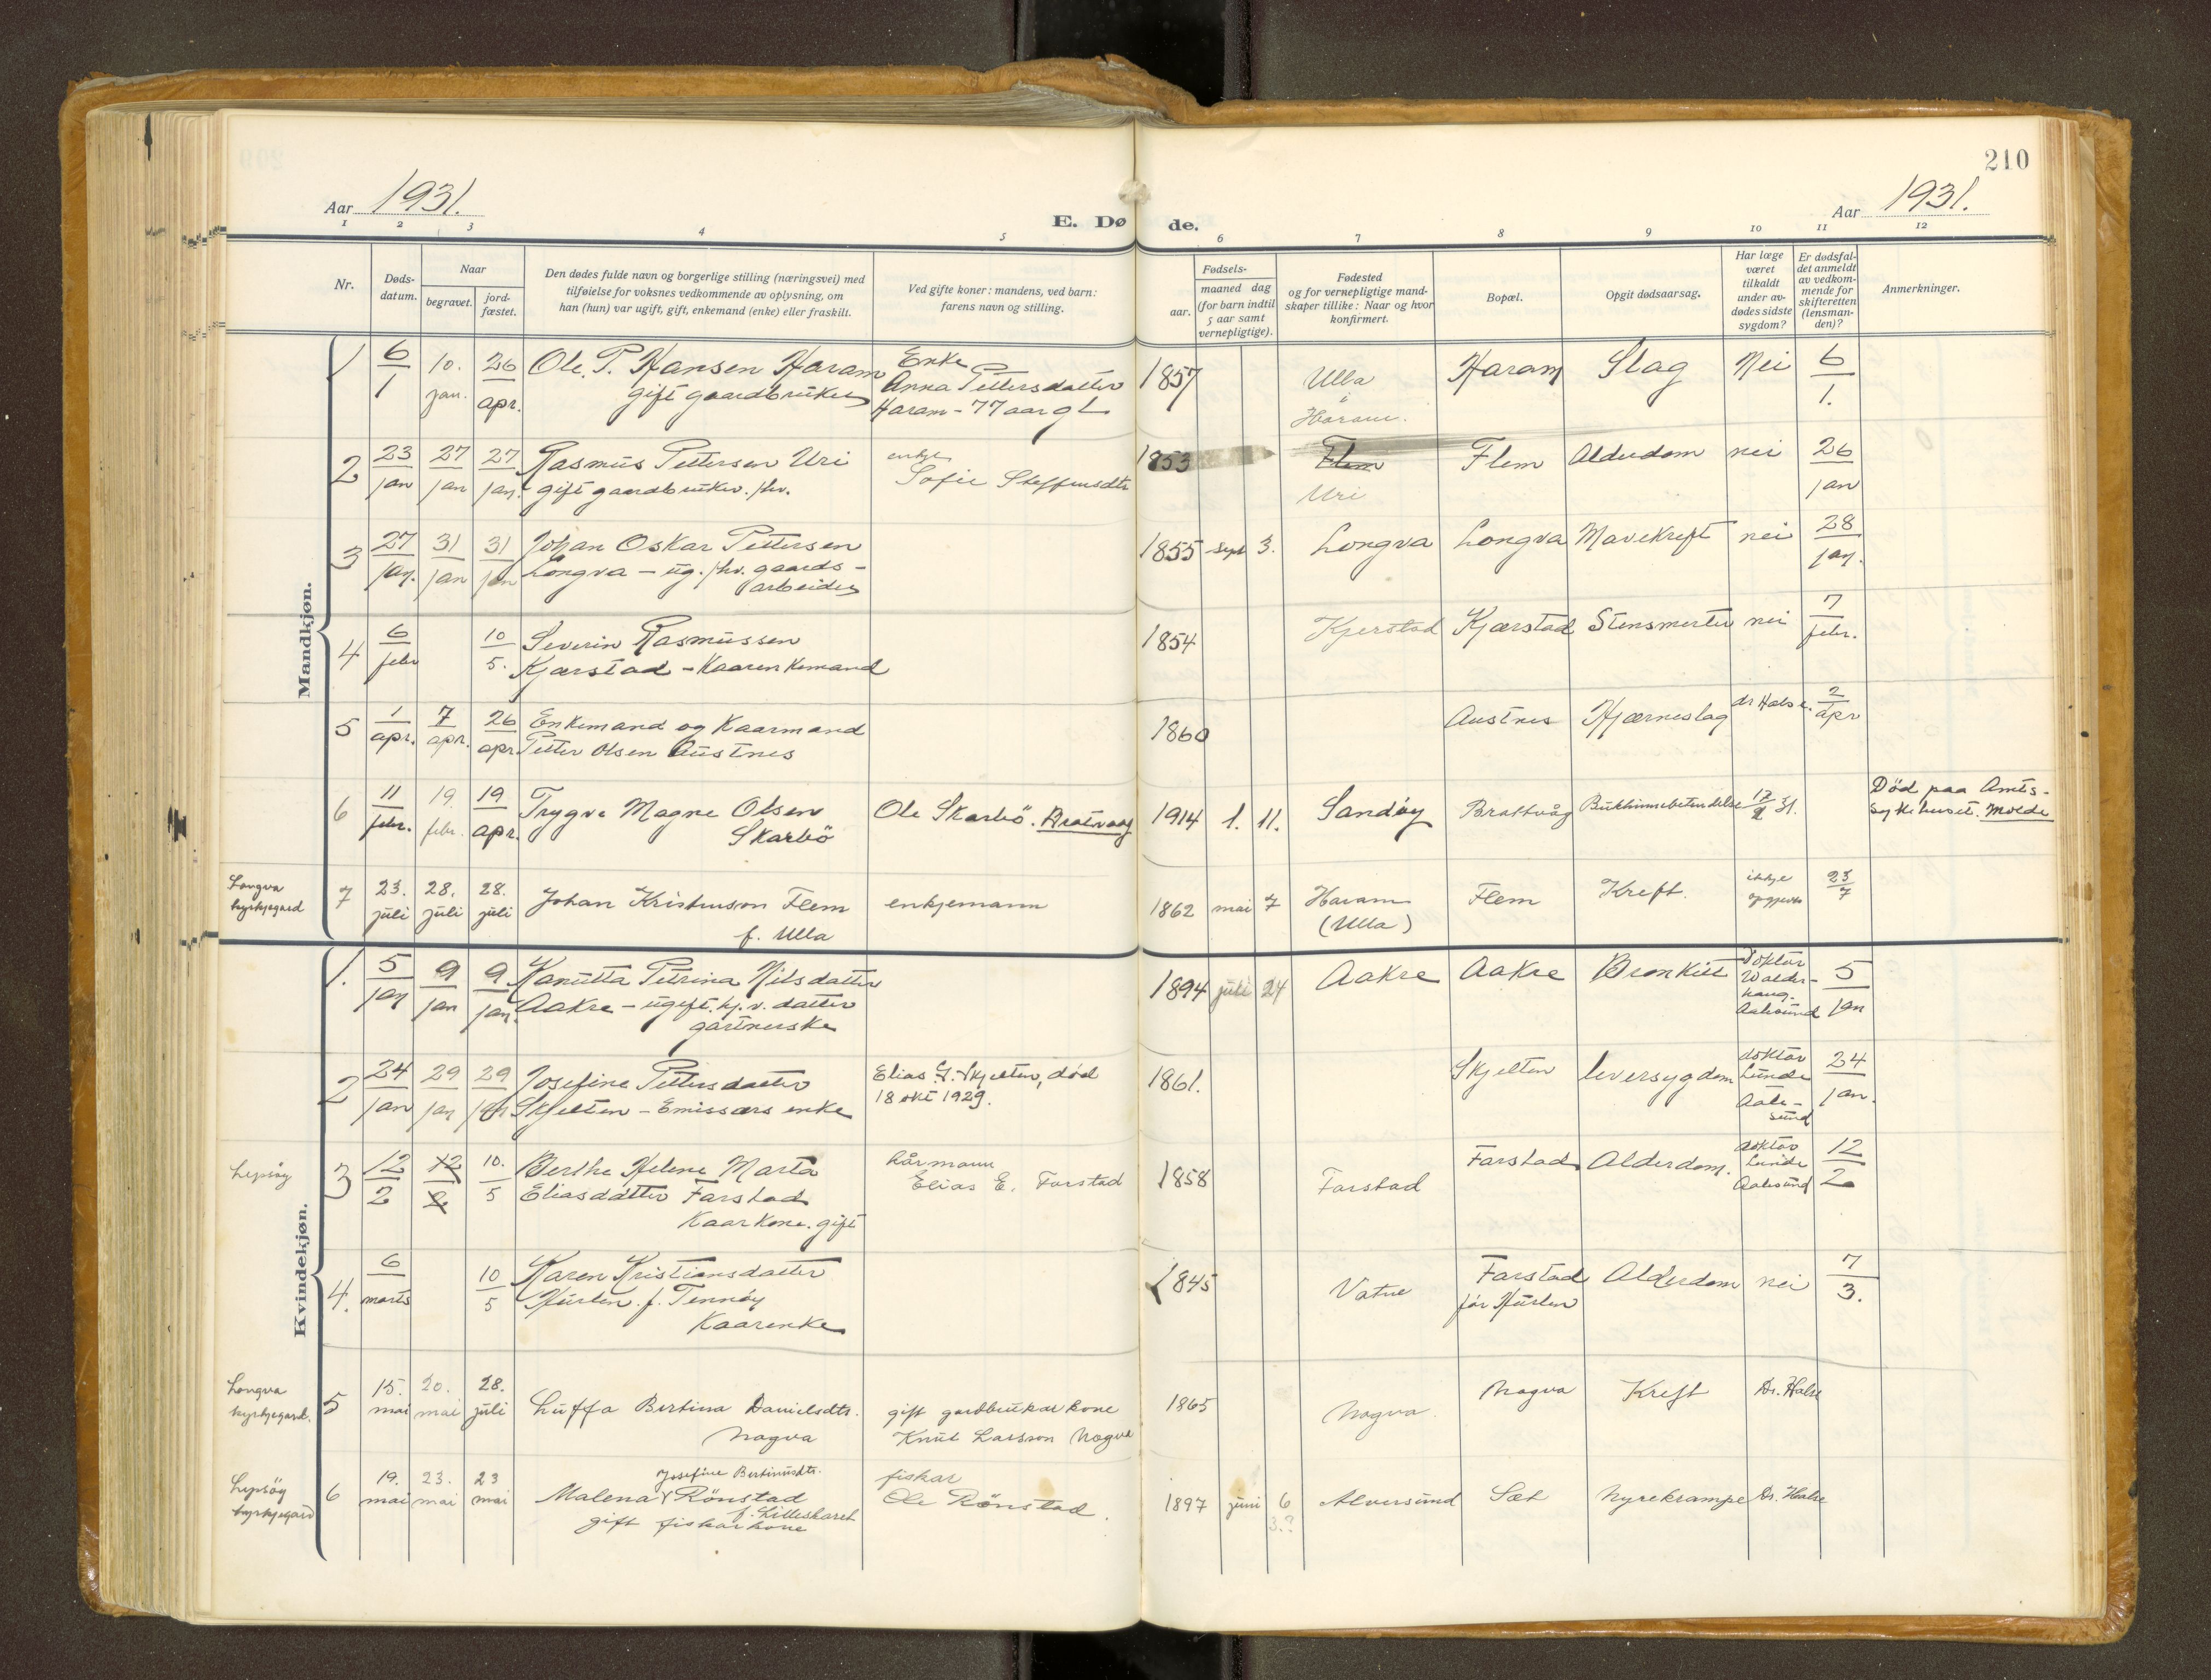 210
Aar 1931.
E. Dø de.
Aar 1931.
1 2 3 4 5 6 7 8 9 10 11 12
Nr.
Døds-
datum.
Naar
begravet.
jord-
fæstet.
Den dødes fulde navn og borgerlige stilling (næringsvei) med
tilføielse for voksnes vedkommende av oplysning, om
han (hun) var ugift, gift, enkemand (enke) eller fraskilt.
Ved gifte koner: mandens, ved barn:
farens navn og stilling.
Fødsels-
aar.
maaned dag
(for barn indtil
5 aar samt
vernepligtige).
Fødested
og for vernepligtige mand-
skaper tillike: Naar og hvor
konfirmert.
Bopæl.
Opgit dødsaarsag.
Har læge
været
tilkaldt
under av-
dødes sidste
sygdom?
Er dødsfal-
det anmeldt
av vedkom-
mende for
skifteretten
(lensman-
den)?
Anmerkninger.
Mandkjøn.
1 6/1 10. jan. 26/apr.
Ole P. Hansen Haram
gift gaardbruker
Enke
Anna Pettersdatter
Haram - 77 aar gl
1857
Ulla
i
Haram.
Haram Slag Nei 6/1.
2 23/jan 27/jan 27/jan.
Rasmus Pettersen Uri
gift gaardbruker. fhv.
enkje
Sofie Steffensdtr
1853
Flem
Uri
Flem Alderdom nei 26/jan
3 27/jan. 31/jan 31/jan
Johan Oskar Pettersen
Longva - ug. fhv. gaards-
arbeider
1855 sept 3. Longva Longva Mavekreft nei 28/jan.
4 6/febr 10/5.
Severin Rasmussen
Kjærstad - Kaarenkemand
1854 Kjerstad Kjærstad Stensmerter nei 7/febr.
5 1/apr. 7/apr. 26/apr.
Enkemand og Kaarmand
Petter Olsen Austnes
1860 Austnes Hjærneslag dr Halse. 2/apr
6 11/febr. 19. febr. 19/apr.
Trygve Magne Olsen
Skarbö
Ole Skarbö. Bratvaag
1914 1. 11. Sandöy Brattvåg Bukhinnebetendelse 31.
Död paa Amts-
sykehuset. Molde
Longva
kyrkjegard
7 23. juli 28. juli 28. juli
Johan Kristenson Flem
f. Ulla
enkjemann
1862 mai 7 Haram
(Ulla)
Flem Kreft. ikkje
23/7
Kvindekjøn.
1. 5/jan 9/jan 9/jan.
Kanutta Petrina Nilsdatter
Aakre - ugift. kj. v. datter
gartnerske
1894 juli 24 Aakre Aakre Bronkitt
Doktor
Walder-
haug.
Aalesund
5/jan
2 24/jan 29/jan 29/jan
Josefine Pettersdatter
Skjelten - Emissærs enke
Elias G. Skjelten, död
18 okt 1929.
1861. Skjelten leversygdom
doktor
Lunde
Aale-
sund
24/jan.
Lepsöy
3 12/2 12/2 10./5
Berthe Helene Marta
Eliasdatter Farstad
Kaarkone. gift
kårmann
Elias E. Farstad
1858 Farstad Farstad Alderdom.
doktor
Lunde
Aalesund
12/2
4. 6/marts 10/5
Karen Kristiansdatter
Hurlen. f. Tennöy
Kaarenke
1845 Vatne Farstad
för Hurlen
Alderdom nei 7/3.
Longva
kyrkjegard.
5 15. mai 20. mai 28. juli
Luffa Bertina Danielsdtr.
Nogva
gift gardbrukar kone
Knut Larsson Nogva
1865 Nogva. Nogva Kreft Dr. Halse
Lepsöy
kyrkjegard
6 19. mai 23. mai 23 mai
Josefine Bertinusdtr.
Malena Rönstad
f. Lilleskaret
gift fiskarkone
fiskar
Ole Rönstad.
1897 juni 6
3.?
Alversund Sæt Nyrekrampe Dr. Halse